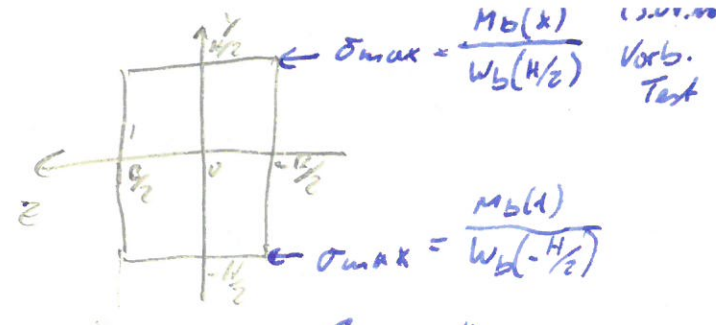 y
H/2
σmax = Mb(x) / Wb(H/2)
Vorb.
Test
B/2
0
-B/2
z
σmax = Mb(x) / Wb(-H/2)
-H/2